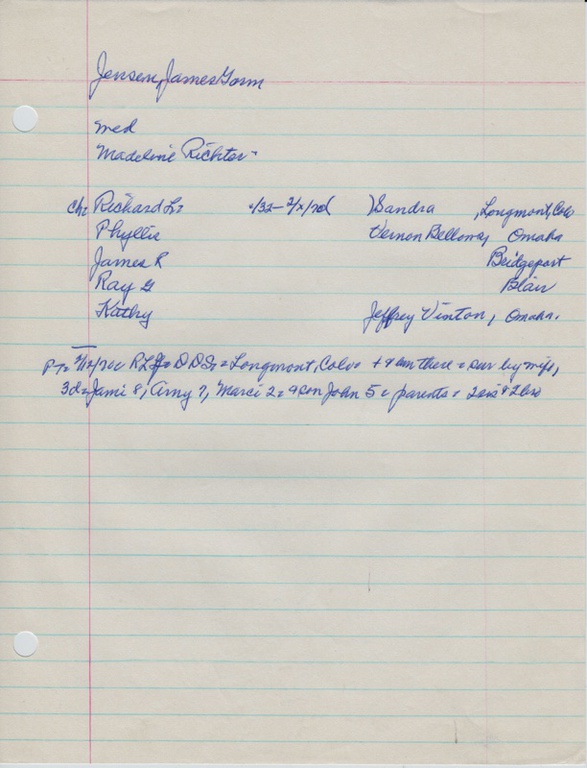 Jensen, James Gorm
med
Madeline Richter
ch: Richard L. Sandra , Longmont, Colo
Phyllis Vernon Bellamy Omaha
James R Bridgeport
Ray G Blair
Kathy Jeffrey Vinton, Omaha.
RLJ = DDS, = Longmont, Colo = + & bur there = sur by wife,
3d = Jami 8, Amy 7, Marci 2 = & son John 5 = parents = 2 sis & 2 bro